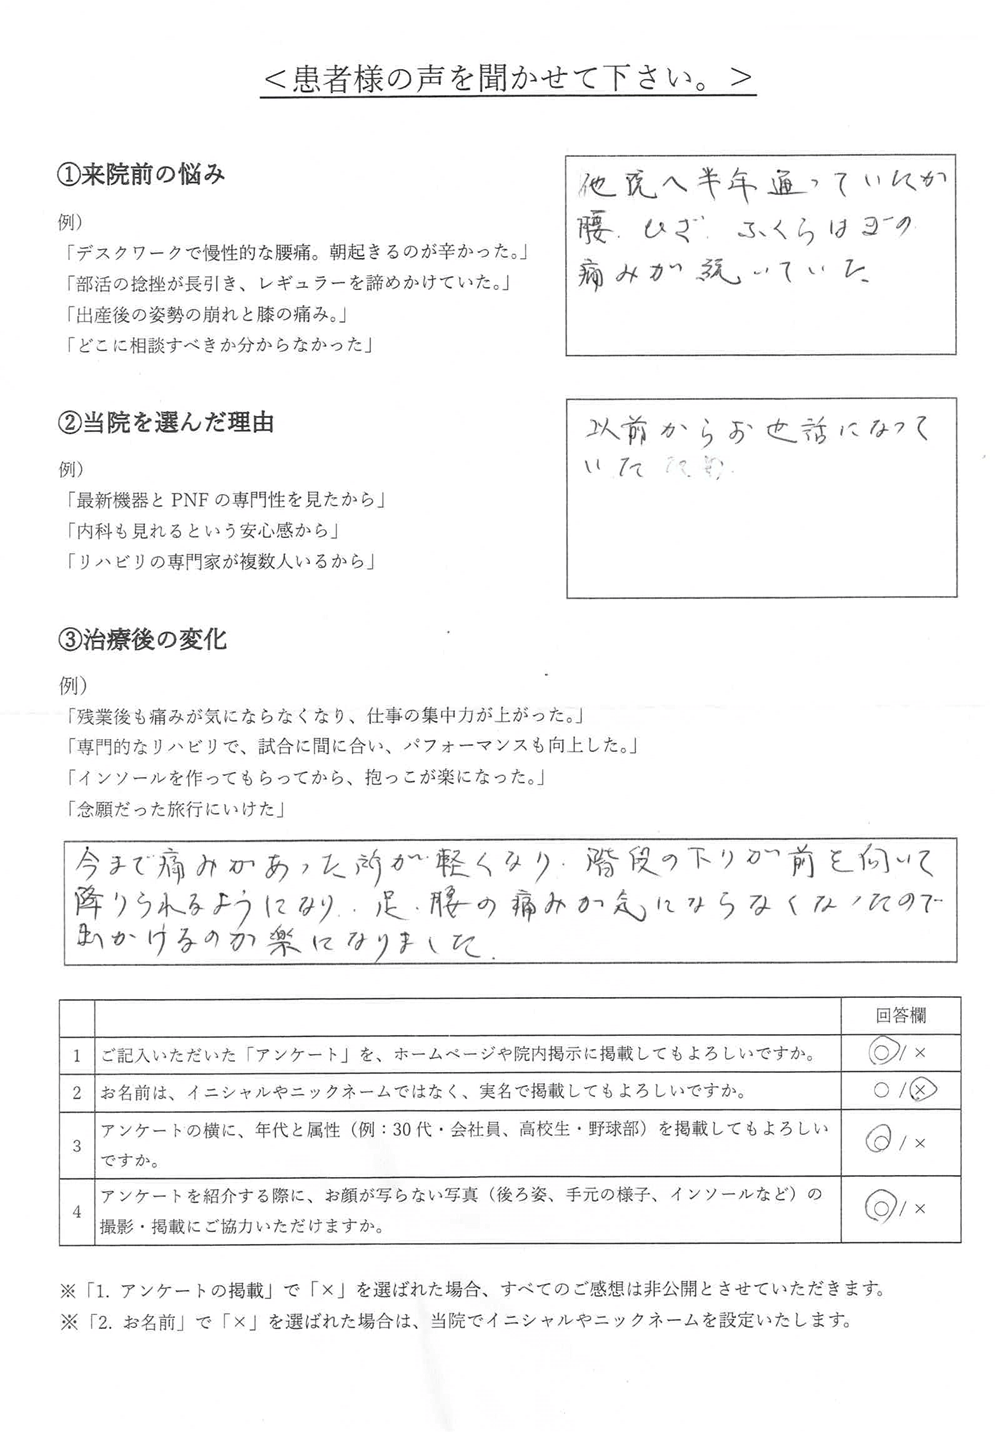 ＜患者様の声を聞かせて下さい。＞
①来院前の悩み
例）
「デスクワークで慢性的な腰痛。朝起きるのが辛かった。」
「部活の捻挫が長引き、レギュラーを諦めかけていた。」
「出産後の姿勢の崩れと膝の痛み。」
「どこに相談すべきか分からなかった」
他院へ半年通っていたが
腰、ひざ、ふくらはぎの
痛みが続いていた
②当院を選んだ理由
例）
「最新機器と PNF の専門性を見たから」
「内科も見れるという安心感から」
「リハビリの専門家が複数人いるから」
以前からお世話になって
いた
③治療後の変化
例）
「残業後も痛みが気にならなくなり、仕事の集中力が上がった。」
「専門的なリハビリで、試合に間に合い、パフォーマンスも向上した。」
「インソールを作ってもらってから、抱っこが楽になった。」
「念願だった旅行にいけた」
今まで痛みがあった所が軽くなり、階段の下りが前を向いて
降りられるようになり、足、腰の痛みが気にならなくなったので
出かけるのが楽になりました。
回答欄
1 ご記入いただいた「アンケート」を、ホームページや院内掲示に掲載してもよろしいですか。 ○ / ×
2 お名前は、イニシャルやニックネームではなく、実名で掲載してもよろしいですか。 ○ / ×
3 アンケートの横に、年代と属性（例：30 代・会社員、高校生・野球部）を掲載してもよろしい
ですか。 ○ / ×
4 アンケートを紹介する際に、お顔が写らない写真（後ろ姿、手元の様子、インソールなど）の
撮影・掲載にご協力いただけますか。 ○ / ×
※「1. アンケートの掲載」で「×」を選ばれた場合、すべてのご感想は非公開とさせていただきます。
※「2. お名前」で「×」を選ばれた場合は、当院でイニシャルやニックネームを設定いたします。